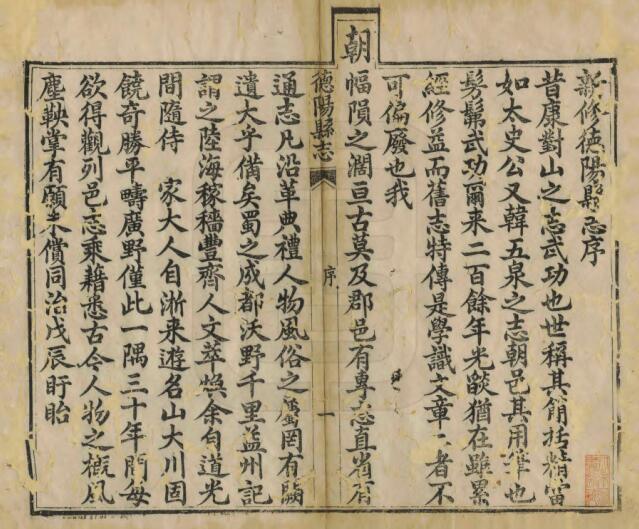 新修德陽縣志序
昔康對山之志武功也世稱其簡括精當
如太史公又韓五泉之志朝邑其用筆也
髣髴武功爾來二百餘年光燄猶在雖累
經修益而舊志特傳是學識文章二者不
可偏廢也我
朝幅隕之濶亘古莫及郡邑有專志直省有
德陽縣志 序 一
通志凡沿革典禮人物風俗之屬罔有闕
遺大乎備矣蜀之成都沃野千里益州記
謂之陸海稼穡豐齊人文萃煥余自道光
間隨侍 家大人自浙来遊名山大川固
饒奇勝平疇廣野僅此一隅三十年間每
欲得觀列邑志乘藉悉古今人物之概風
塵鞅掌有願未償同治戊辰盱眙